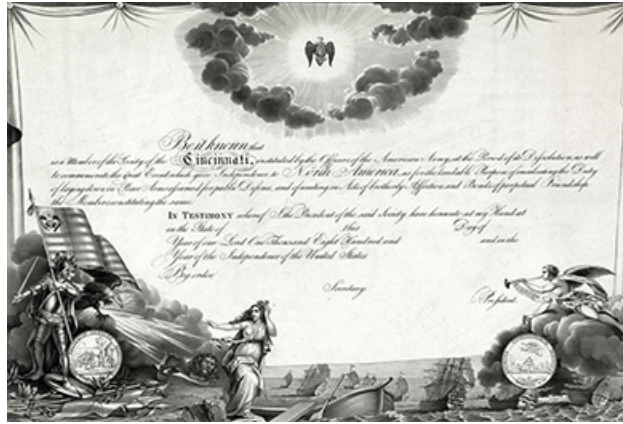 Be it known that
as a Member of the Society of the Cincinnati, instituted by the Officers of the American Army, at the Period of its Dissolution, as well
to commemorate the great Event which gave Independence to North America, as for the laudable Purpose of inculcating the Duty
of laying down in Peace Arms assumed for public Defence, and of uniting in Acts of brotherly Affection, and Bonds of perpetual Friendship
the Members constituting the same.
IN TESTIMONY whereof I the President of the said Society, have hereunto set my Hand at
in the State of this Day of
Year of our Lord One Thousand Eight Hundred and and in the
Year of the Independence of the United States
By order,
Secretary.
President.